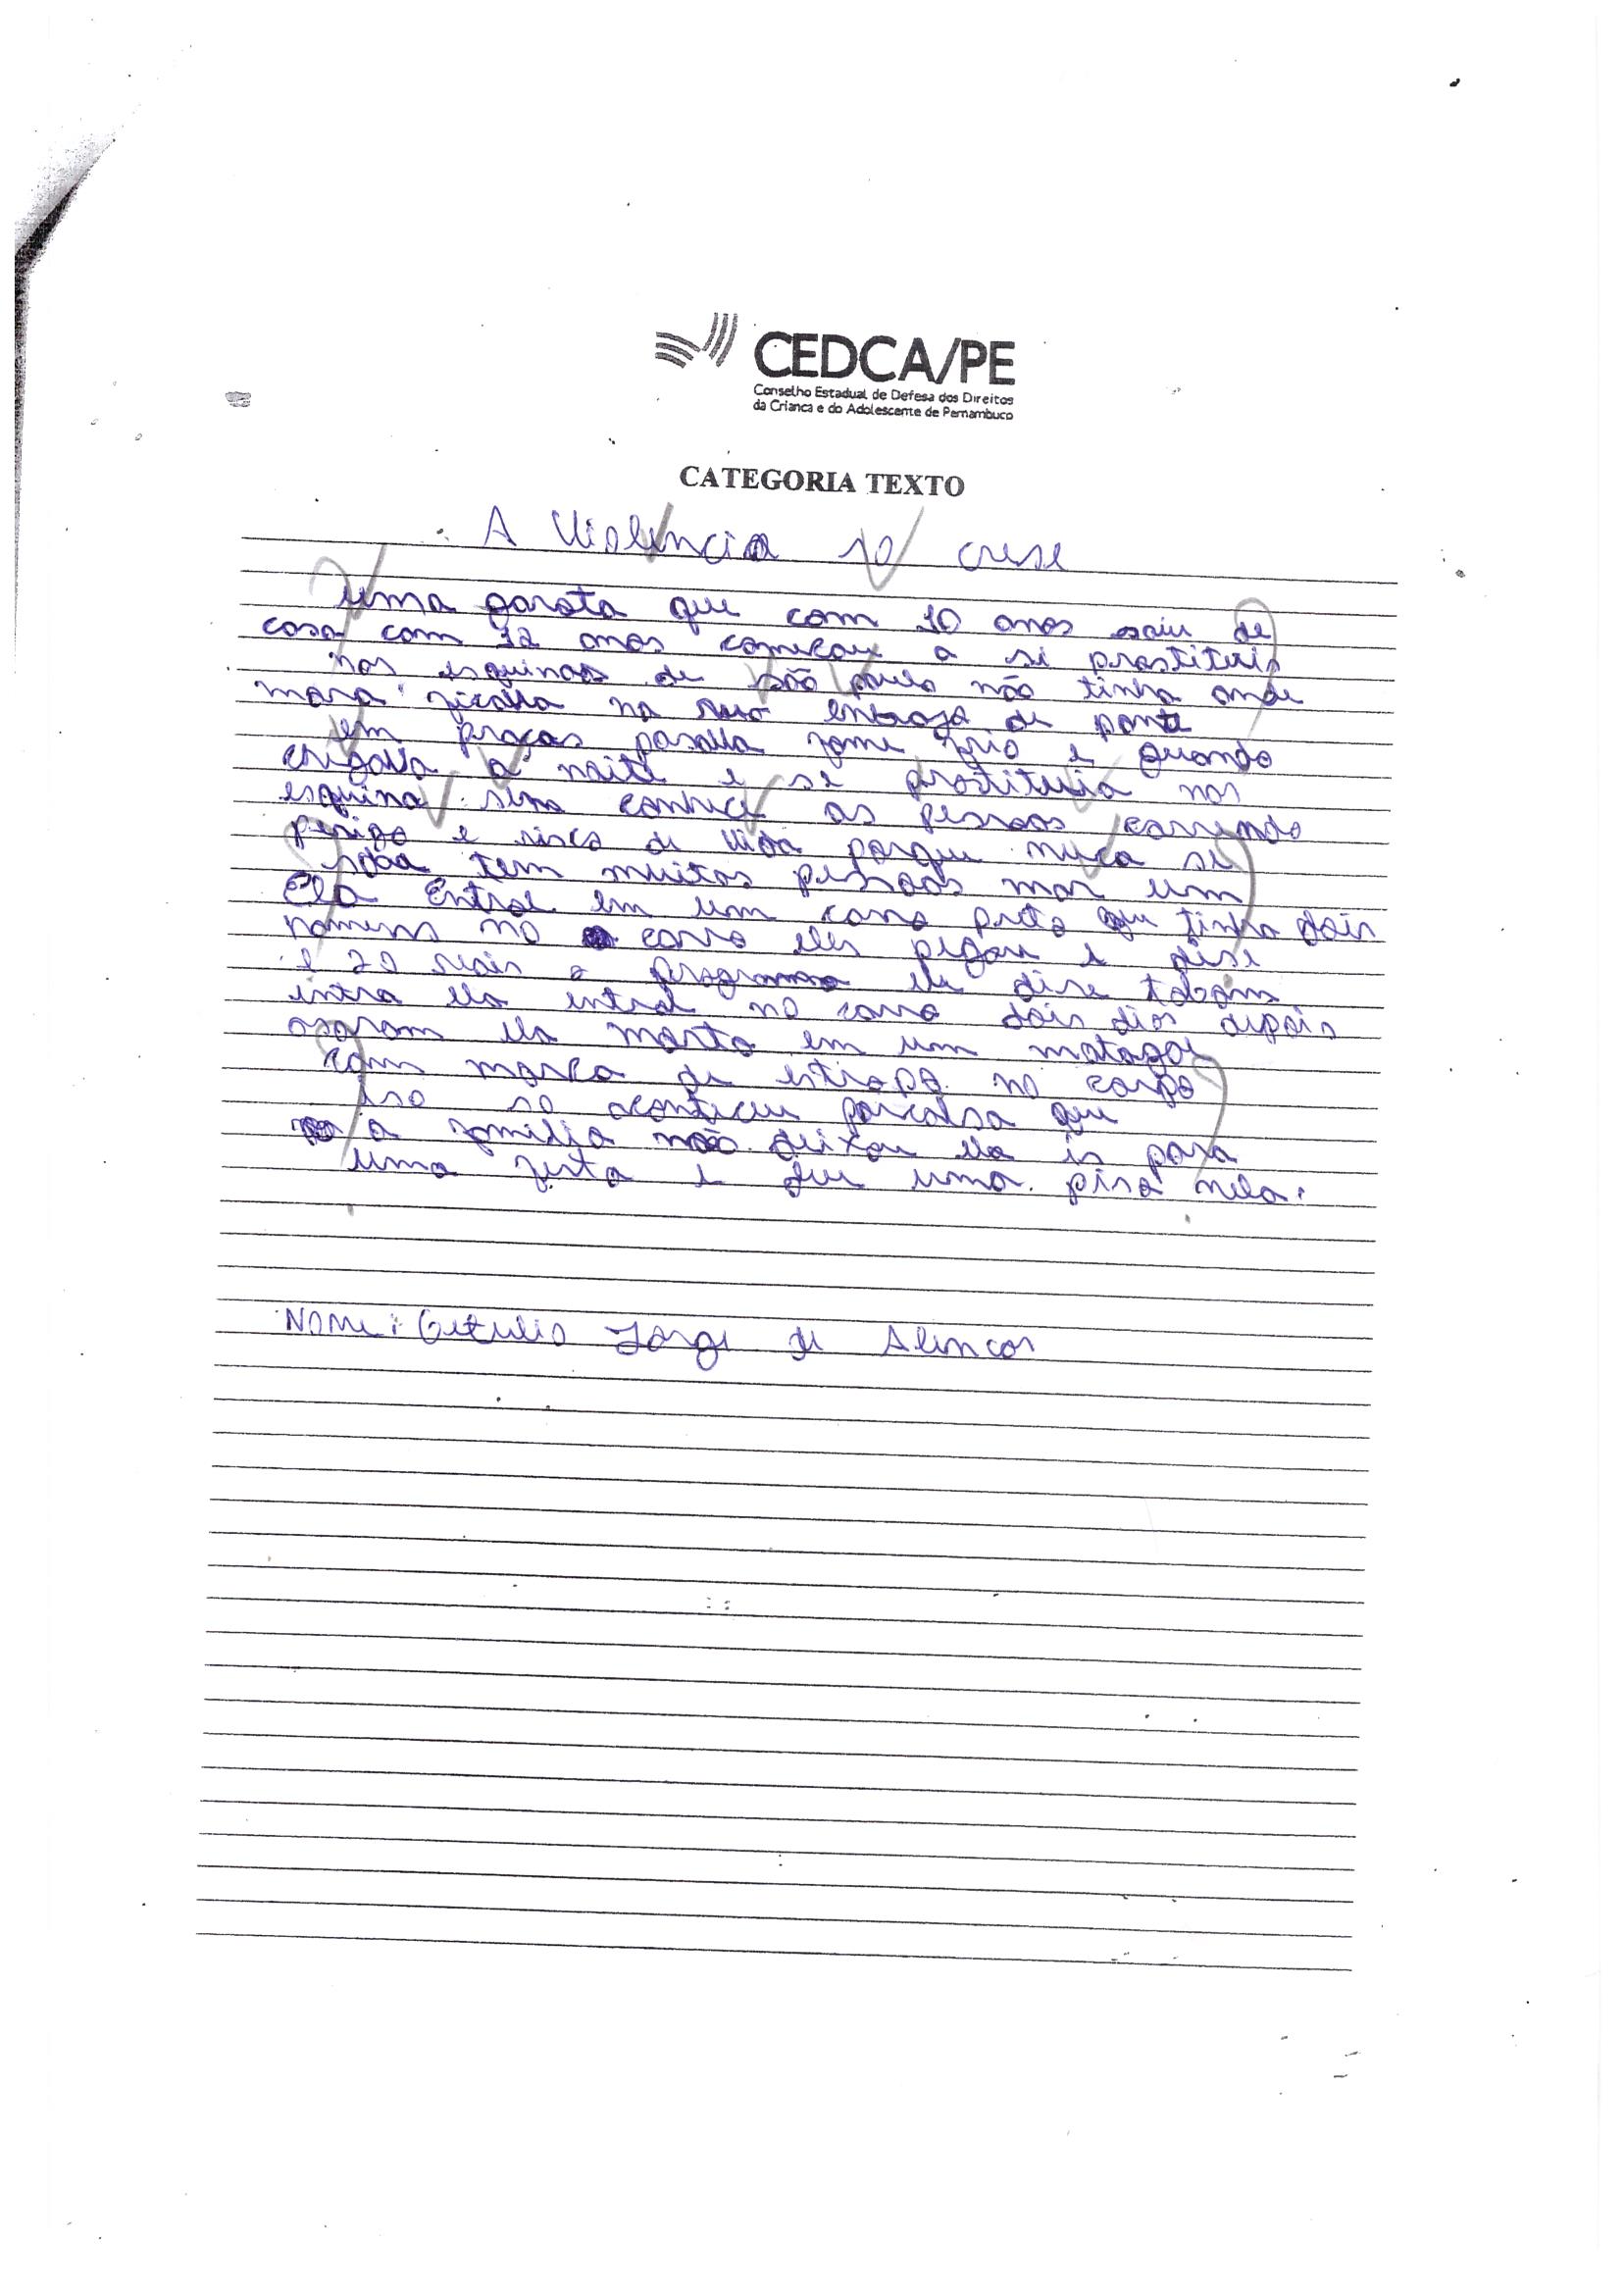 CEDCA/PE
Conselho Estadual de Defesa dos Direitos
da Criança e do Adolescente de Pernambuco
CATEGORIA TEXTO
A Violência so crese
uma garota que com 10 anos saiu de
casa com 12 anos começou a si prostituir
nas esquinas de são paulo não tinha onde
mora ficava na rua embaxo de ponte
em praças pasava fome frio e quando
chegava a noite e se prostituia nas
esquina sem conhece as pessoas correndo
perigo e risco de vida porque nuca se
sabe tem muitas pessoas mar um
Ela Entrol em um carro preto que tinha dois
homens no carro eles pegou e dise
e 20 reais o programa ele dise tabom
intra ela entrol no carro dois dias depois
axaram ela morta em um matagal
com marca de estropo no corpo
iso so aconteceu porcalsa que
a familia não deixou ela ir para
uma festa e deu uma pisa nela.
Nome: Getulio Jorge de Alencar